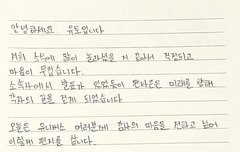 안녕하세요 유토입니다
저희 소식에 많이 놀라셨을 거 같아서 걱정되고
마음이 무겁습니다.
소속사에서 발표가 있었듯이 펜타곤은 미래를 향해
각자의 길을 걷게 되었습니다
오늘은 유니버스 여러분께 감사의 마음을 전하고 싶어
이렇게 편지를 씁니다.